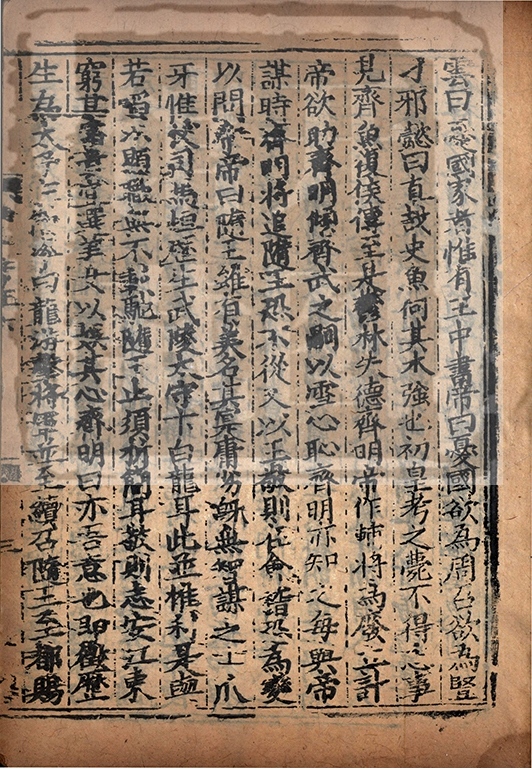 雲曰憂國家者惟有王中書帝曰憂國欲為周召欲為豎
刁邪懿曰直哉史魚何其木強也初皇考之薨不得志事
見齊魚復侯傳至是鬱林失德齊明帝作輔將為廢立計
帝欲助齊明傾齊武之嗣以雪心恥齊明亦知之每與帝
謀時齊明將追隨王恐不從又以王敬則在會稽恐為變
以問帝帝曰隨王雖有美名其實庸劣既無智謀之士爪
牙惟仗司馬垣歷生武陵太守卞白龍耳此並惟利是
若啗以顯職無不載馳隨王止須折簡耳敬則志安江東
窮其富貴宜選美女以娛其心齊明曰亦吾意也即徵歷
生為太子左衛率白龍游擊將軍並至續召隨王至都賜